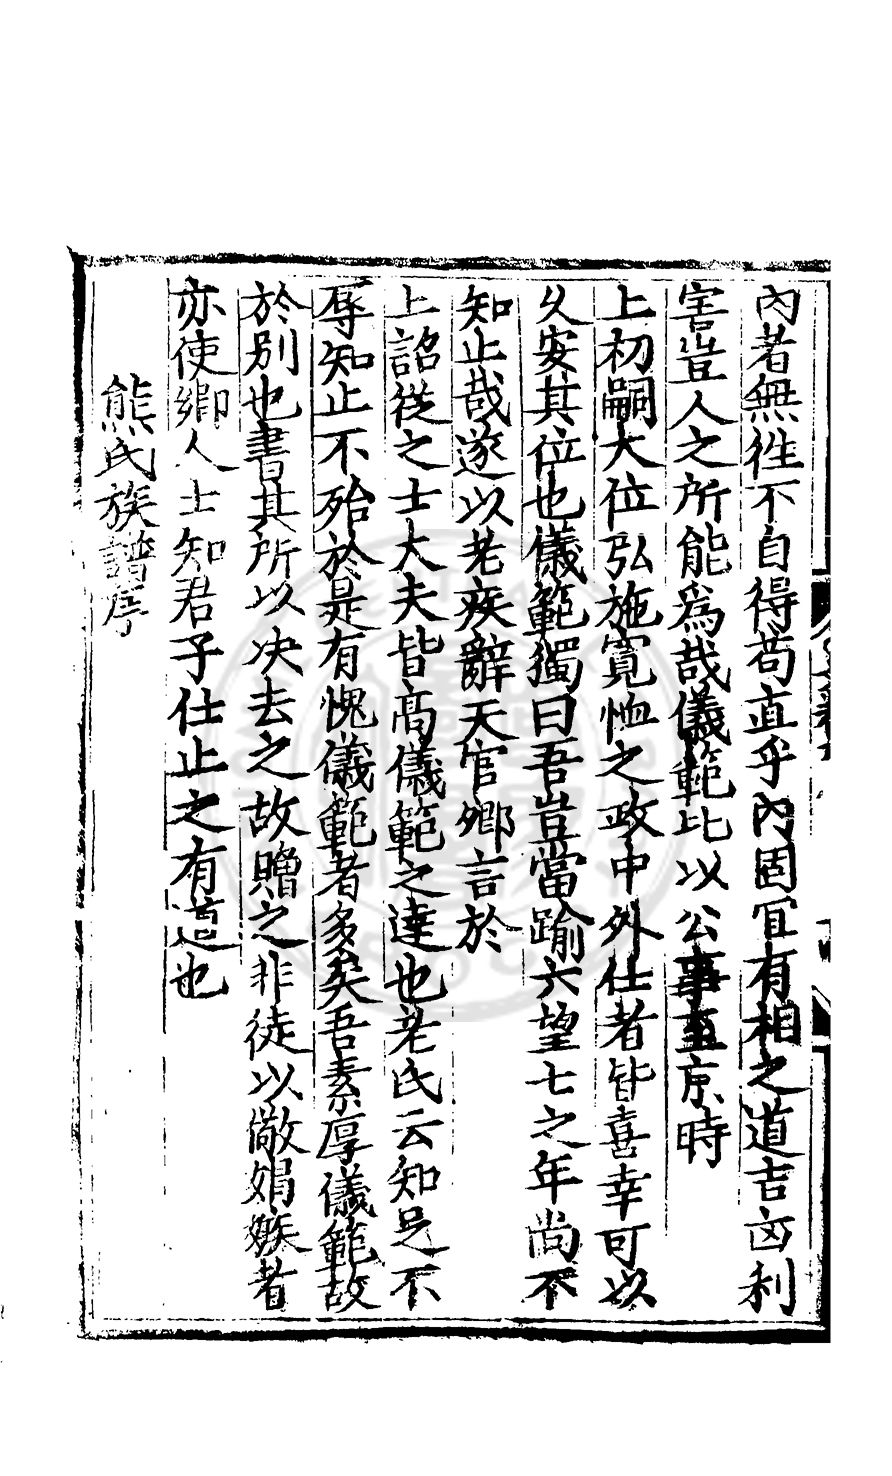 內者無徃不自得苟直乎內固冝有相之道吉凶利
害豈人之所能爲哉儀範比以公事至京時
上初嗣大位弘施寛恤之政中外仕者皆喜幸可以
乆安其位也儀範獨曰吾豈當踰六望七之年尚不
知止哉遂以老疾辭天官卿言於
上詔從之士大夫皆高儀範之達也老氏云知足不
辱知止不殆於是有愧儀範者多矣吾素厚儀範故
於别也書其所以决去之故贈之非徒以儆娟嫉者
亦使鄉人士知君子仕止之有道也
熊氏族譜序